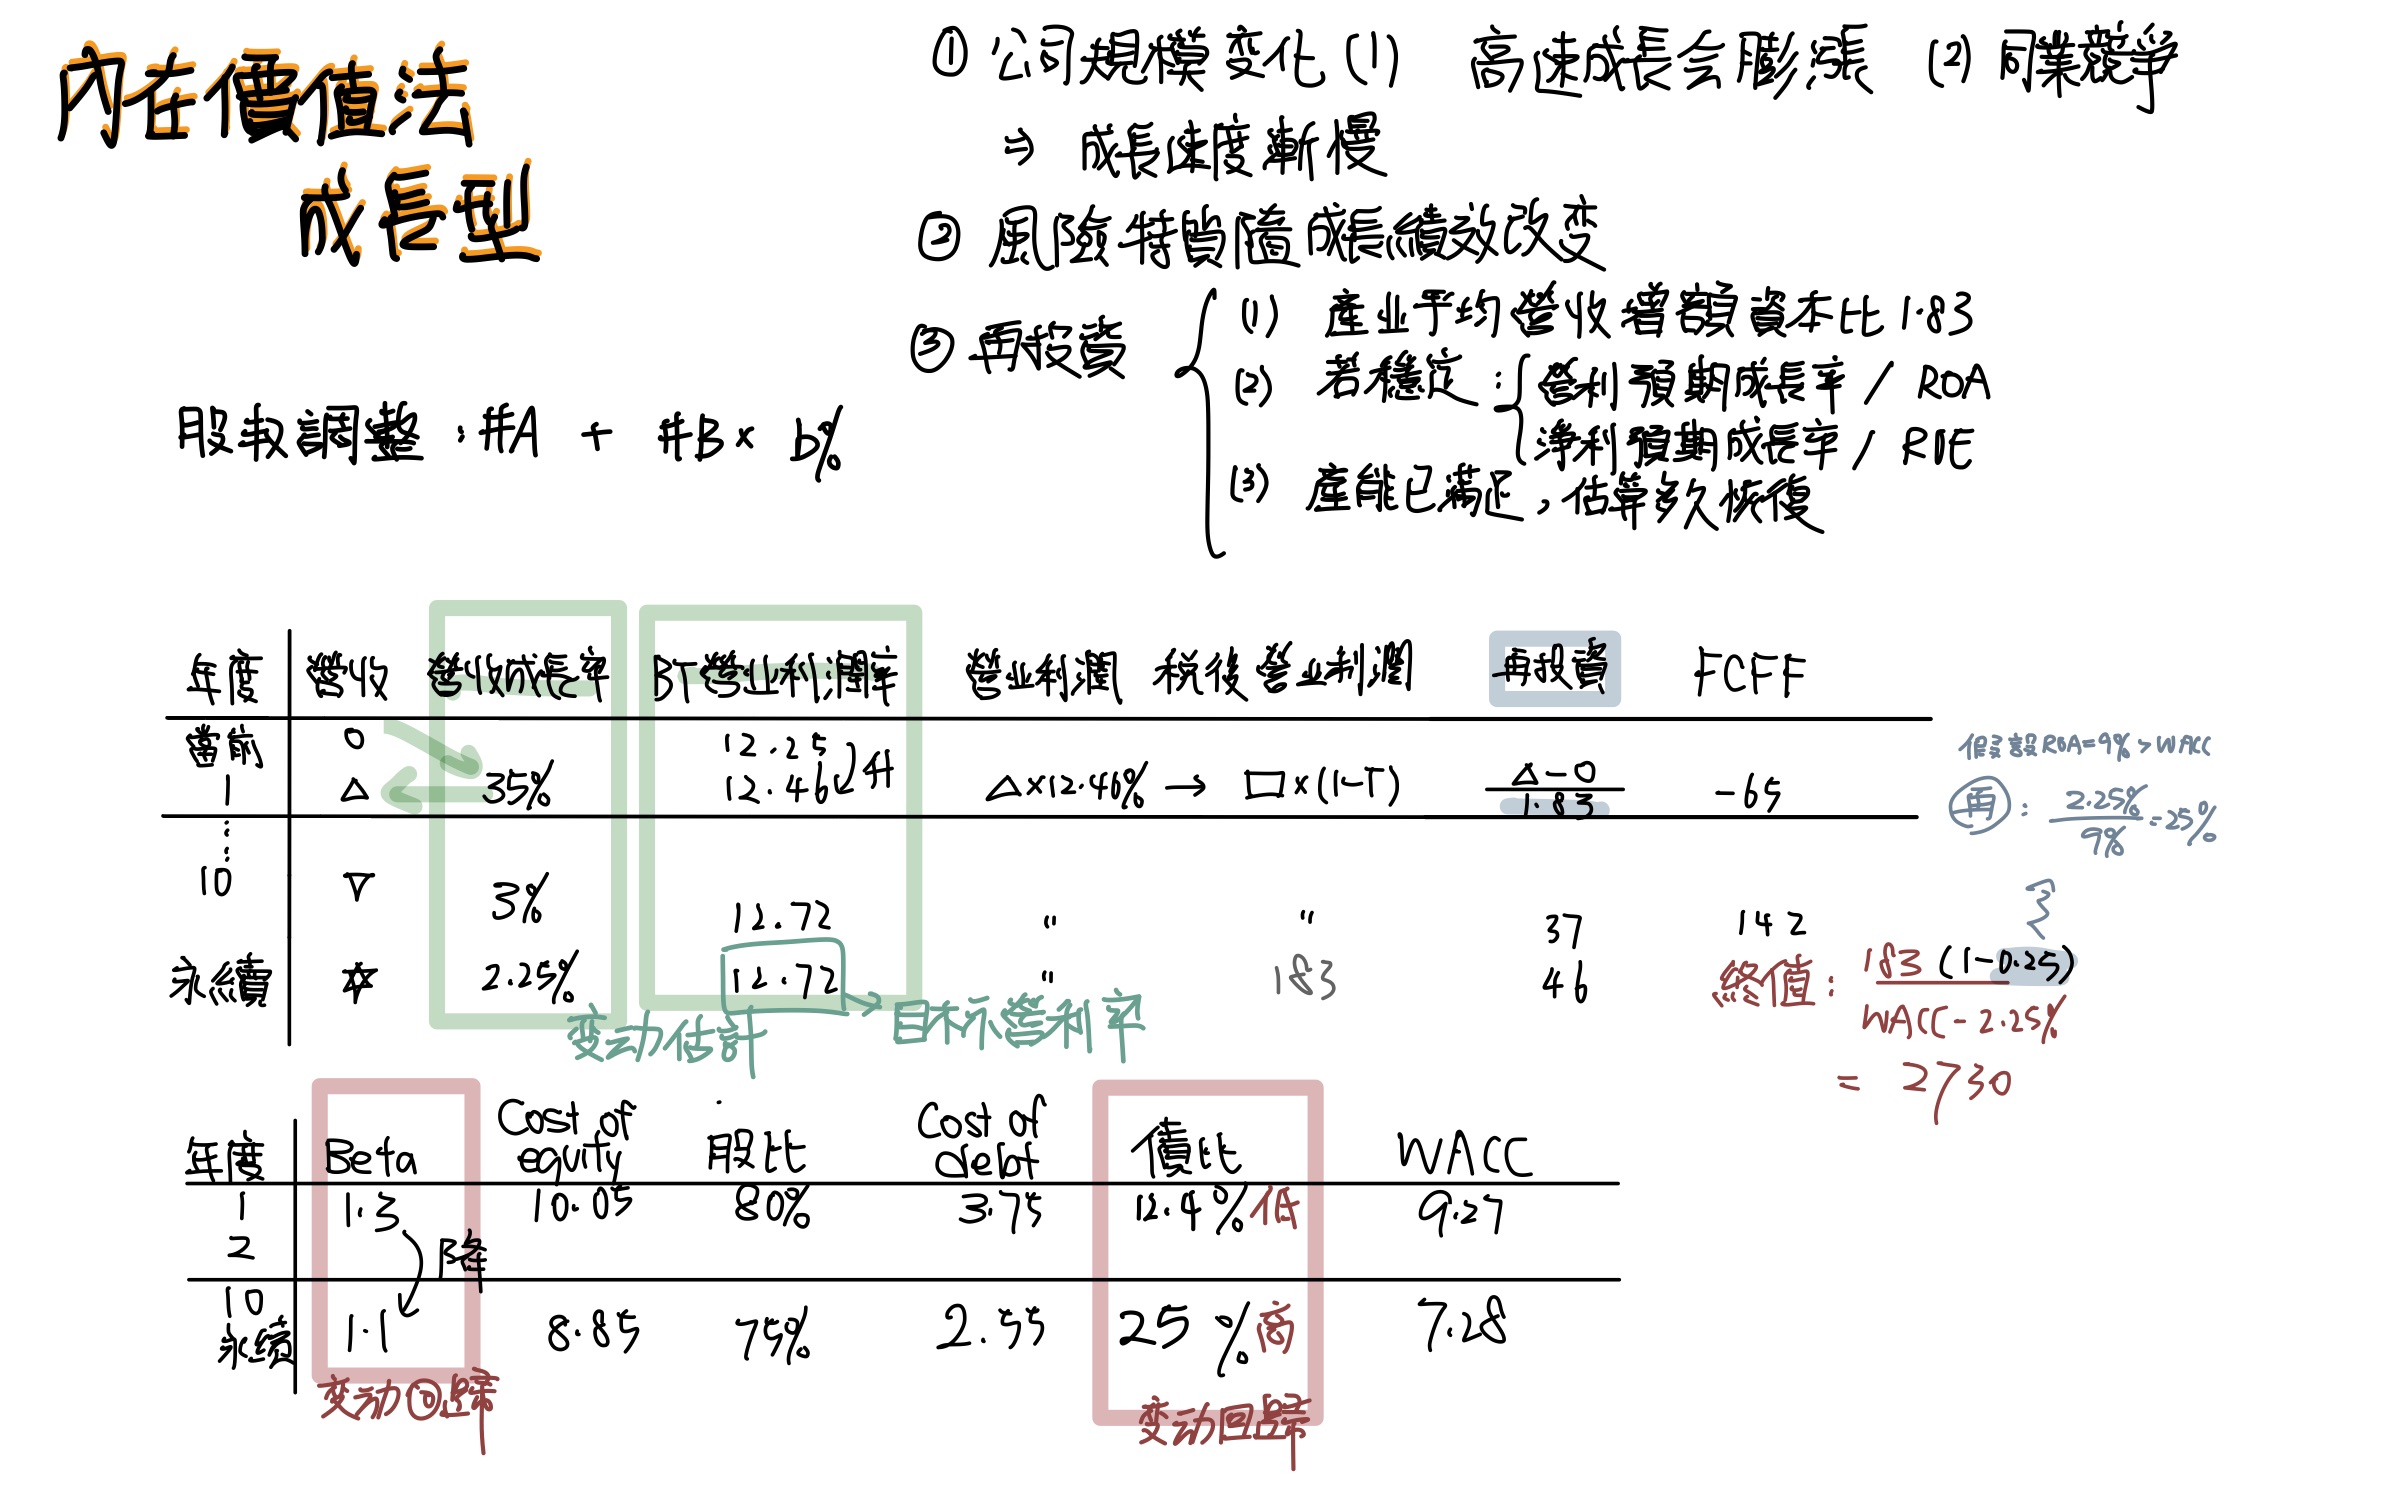 內在價值法
成長型
① 公司規模变化 (1) 高速成長会膨漲 (2) 同業競爭
⇒ 成長速度漸慢
② 風險特質隨成長績效改变
③ 再投資
(1) 產业平均營收增額資本比 1.83
(2) 若穩定 : 營利預期成長率 / ROA
淨利預期成長率 / ROE
(3) 產能已滿足，估算多久恢復
股权調整 : #A + #B × b%
年度 營收 營收成長率 BT營业利潤率 營业利潤 稅後營业利潤 再投資 FCFF
當前 ○ 12.25
升
1 △ 35% 12.46 △×12.46% → □×(1-T) △-○ / 1.83 -65
⋮
10 ▽ 3% 12.72 〃 〃 37 142
永續 ✡ 2.25% 12.72 〃 183 46
变动估計
目标營利率
假設ROA=9% > WACC
再 : 2.25% / 9% = 25%
終值 : 183 (1-0.25) / WACC-2.25%
= 2730
年度 Beta Cost of equity 股比 Cost of debt 債比 WACC
1 1.3 10.05 80% 3.75 12.4% 低 9.27
2
降
10
永續 1.1 8.85 75% 2.55 25% 高 7.28
变动回歸
变动回歸